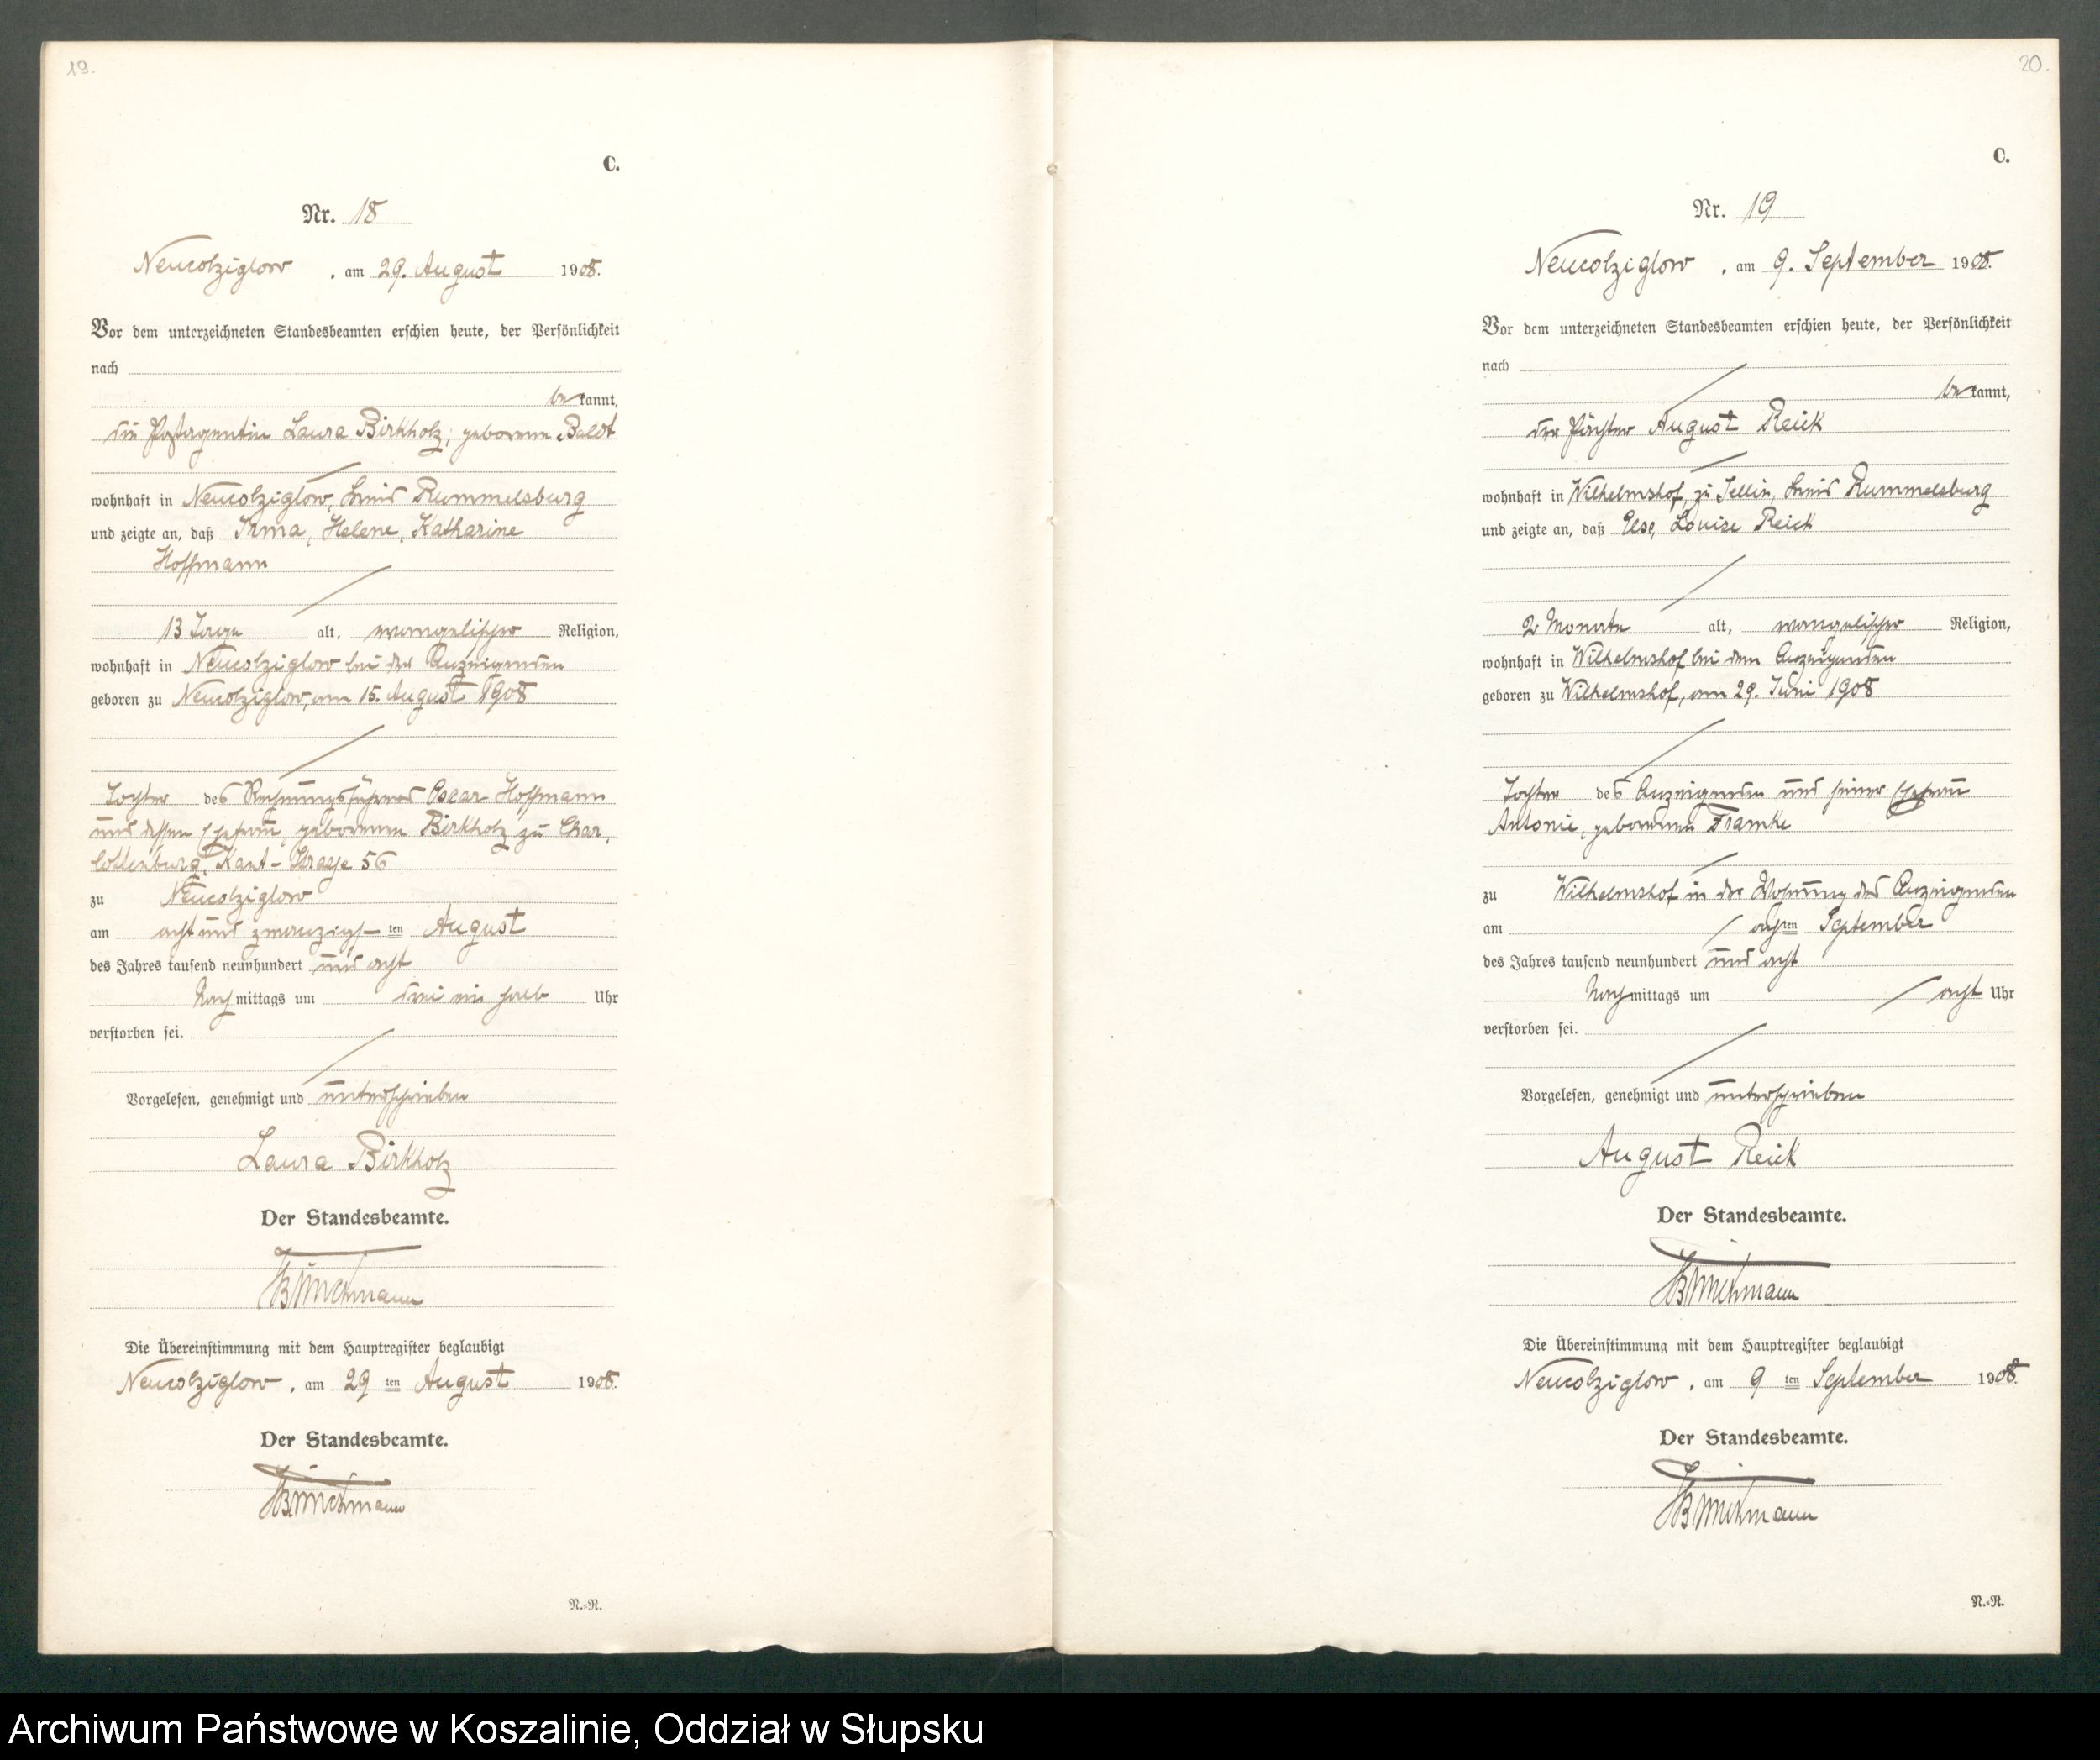 19.
C.
Nr. 18
Neucolziglow, am 29. August 1908.
Vor dem unterzeichneten Standesbeamten erschien heute, der Persönlichkeit
nach
bekannt,
die Postagentin Laura Birkholz, geborene
wohnhaft in Neucolziglow, Kreis Rummelsburg
und zeigte an, daß Irma, Helene, Katharine
Hoffmann
13 Tage alt, evangelischer Religion,
wohnhaft in Neucolziglow bei der Anzeigenden
geboren zu Neucolziglow, am 15. August 1908
Tochter des Rechnungsführers Oscar Hoffmann
und dessen Ehefrau, geborenen Birkholz zu Char-
lottenburg, Kant-Strasse 56
zu Neucolziglow
am acht und zwanzigsten August
des Jahres tausend neunhundert und acht
Nachmittags um drei ein halb Uhr
verstorben sei.
Vorgelesen, genehmigt und unterschrieben
Laura Birkholz
Der Standesbeamte.
Die Übereinstimmung mit dem Hauptregister beglaubigt
Neucolziglow, am 29 ten August 1908.
Der Standesbeamte.
N.=R.
20.
C.
Nr. 19
Neucolziglow, am 9. September 1908.
Vor dem unterzeichneten Standesbeamten erschien heute, der Persönlichkeit
nach
bekannt,
der Pächter August Reick
wohnhaft in Wilhelmshof, zu Sellin, Kreis Rummelsburg
und zeigte an, daß Else, Louise Reick
2 Monate alt, evangelischer Religion,
wohnhaft in Wilhelmshof bei dem Anzeigenden
geboren zu Wilhelmshof, am 29. Juni 1908
Tochter des Anzeigenden und seiner Ehefrau
Antonie, geborenen Framke
zu Wilhelmshof in der Wohnung des Anzeigenden
am achten September
des Jahres tausend neunhundert und acht
Nachmittags um acht Uhr
verstorben sei.
Vorgelesen, genehmigt und unterschrieben
August Reick
Der Standesbeamte.
Die Übereinstimmung mit dem Hauptregister beglaubigt
Neucolziglow, am 9 ten September 1908.
Der Standesbeamte.
N.=R.
Archiwum Państwowe w Koszalinie, Oddział w Słupsku